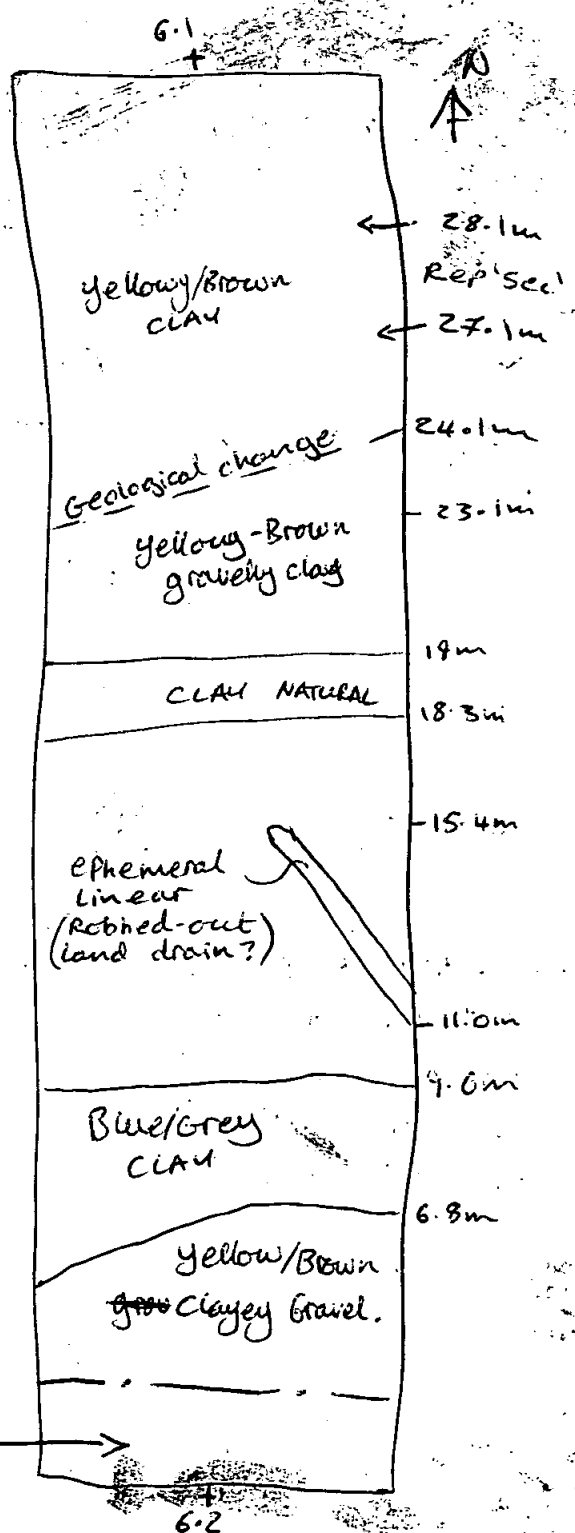 6.1
N
28.1m
Rep 'Sec'
Yellowy/Brown
CLAY
27.1m
24.1m
Geological change
23.1m
Yellowy-Brown
gravelly clay
19m
CLAY NATURAL
18.3m
15.4m
ephemeral
linear
(Robbed-out
land drain?)
11.0m
9.0m
Blue/Grey
CLAY
6.8m
Yellow/Brown
Clayey Gravel.
6.2